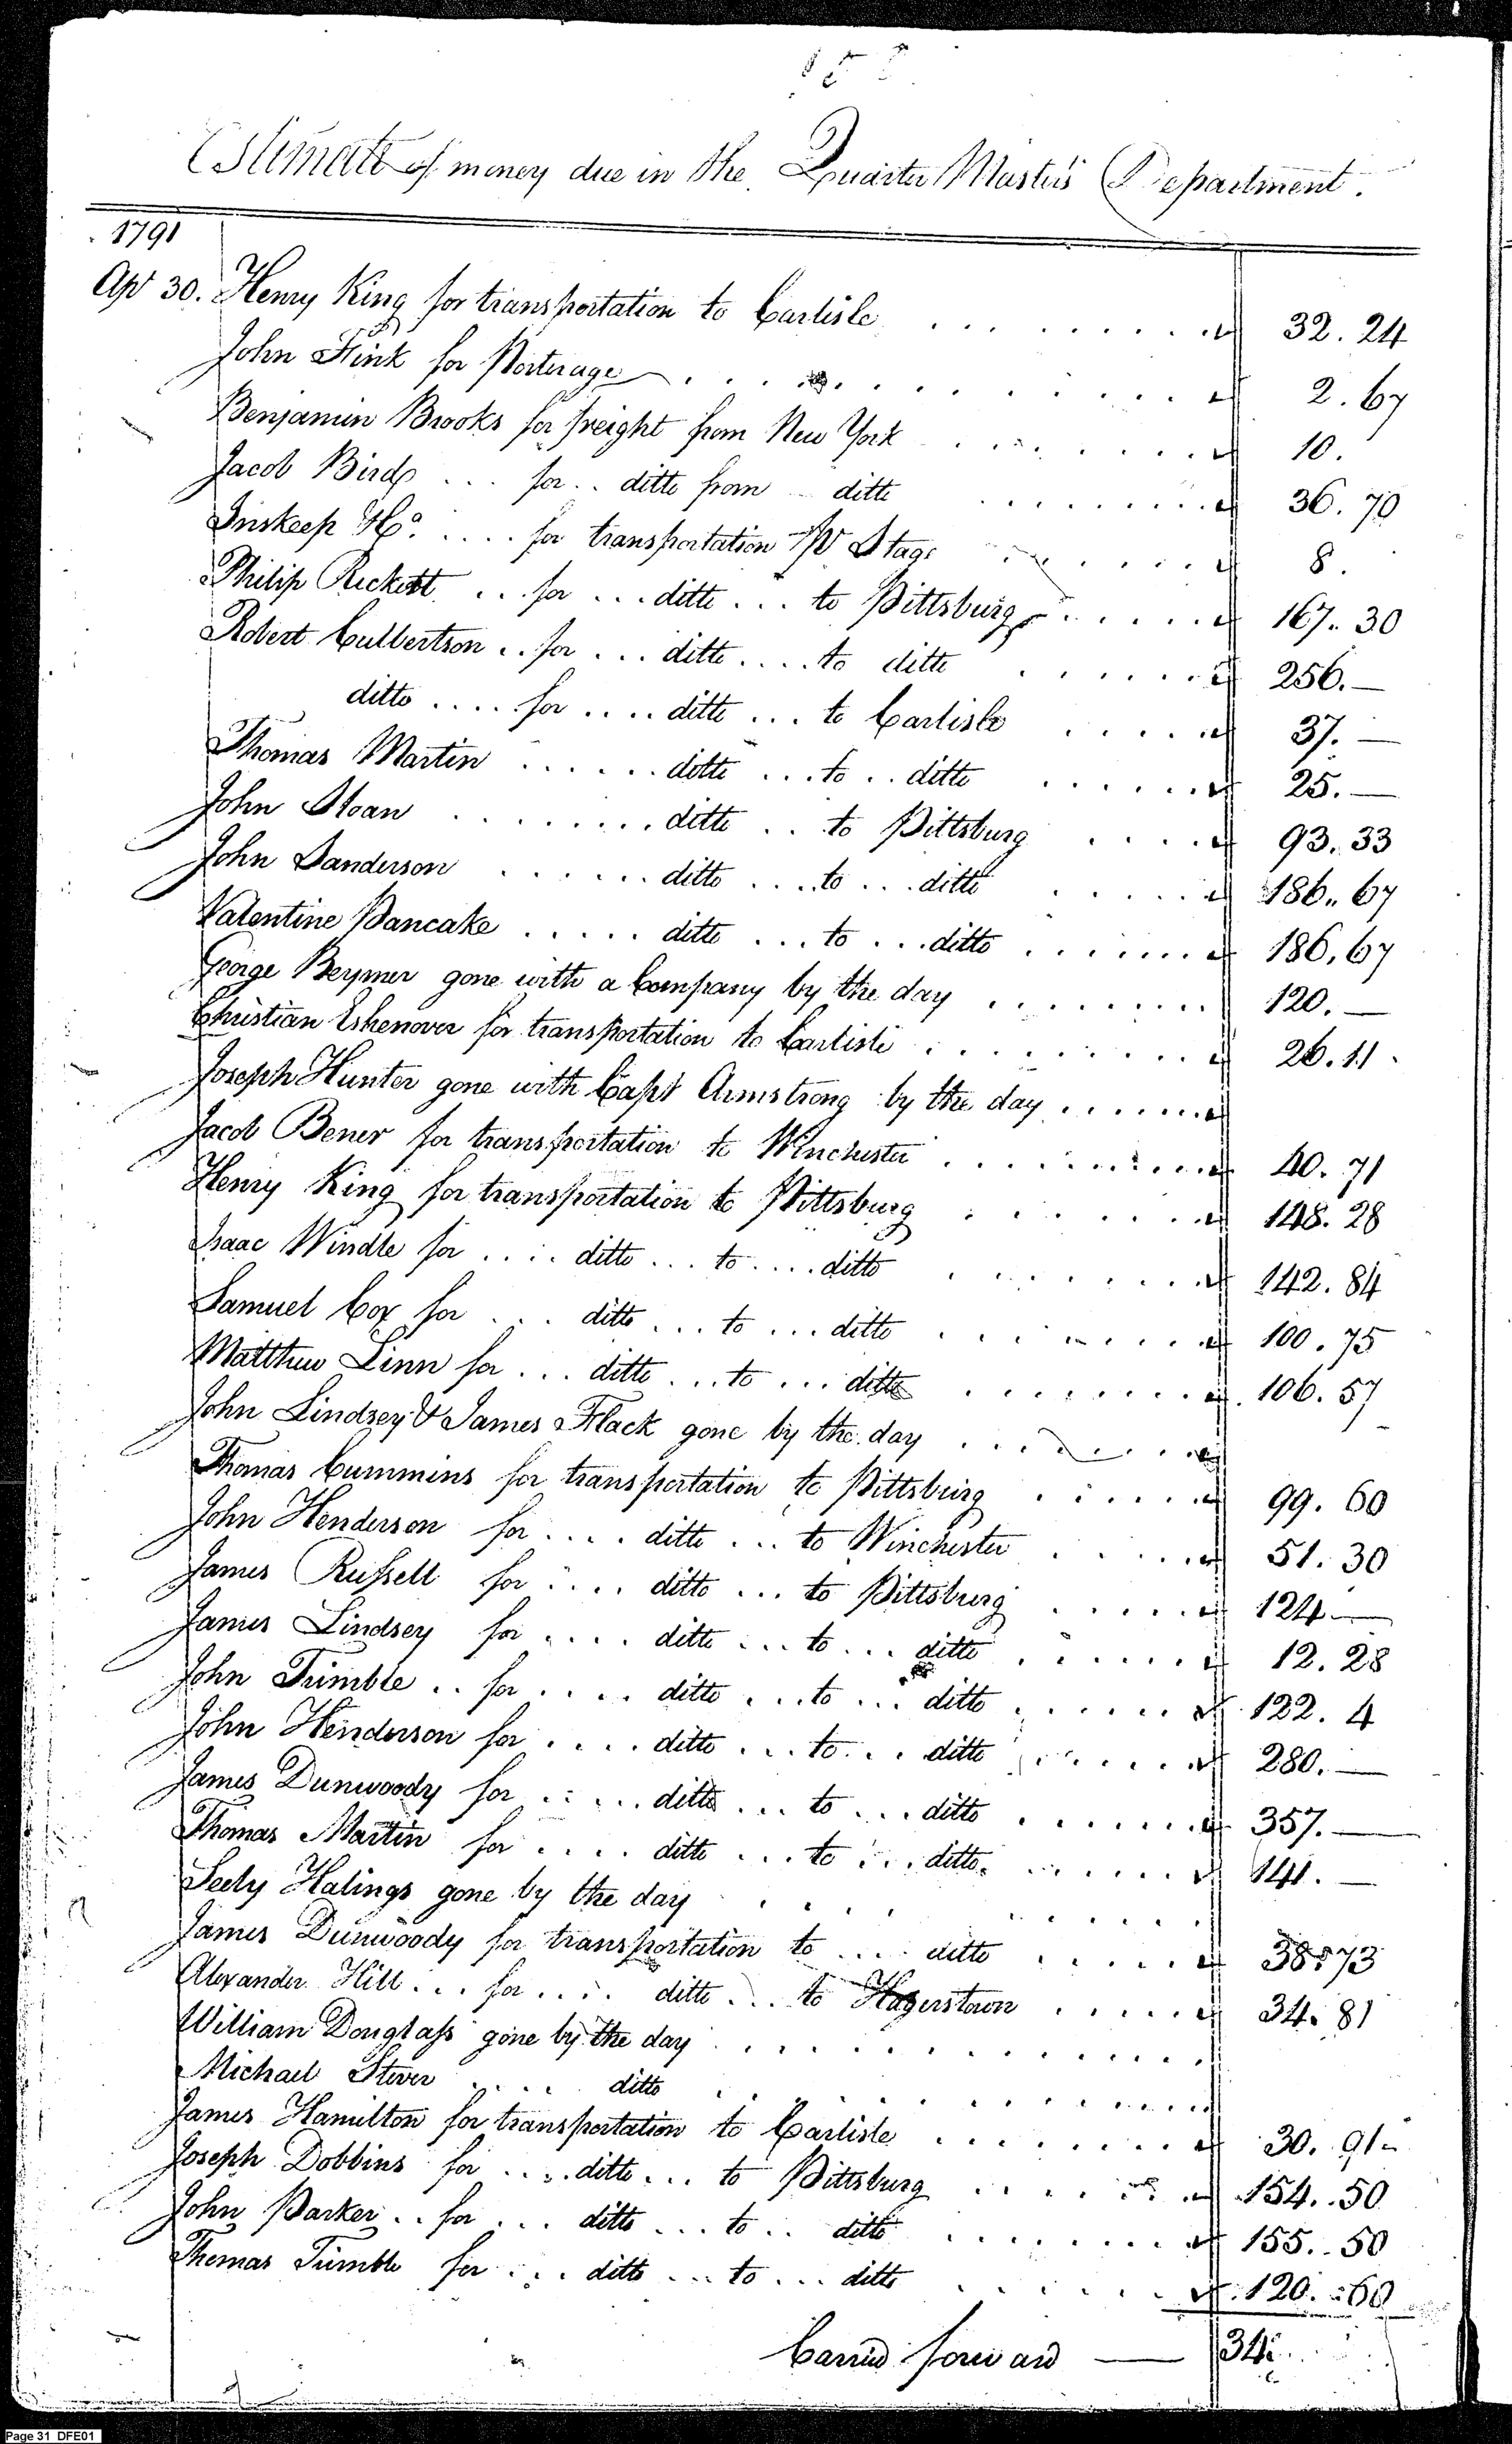 Estimate of money due in the Quarter Master's Department.
1791
Apl 30. Henry King for transportation to Carlisle . . . . . . . . 32. 24
John Fink for Porterage . . . . . . . . . . 2. 67
Benjamin Brooks for freight from New York . . . . . . . 10.
Jacob Bird . . . for . . ditto from ditto . . . . . . . . 36. 70
Inskeep & Co. . . . . for transportation pr Stage . . . . . . 8.
Philip Rickett . . for . . . ditto . . . to Pittsburg . . . . . . 167. 30
Robert Culbertson . . for . . . ditto . . . . to ditto . . . . . . 256. —
ditto . . . . for . . . . ditto . . . to Carlisle . . . . . 37. —
Thomas Martin . . . . . . ditto . . . to . . ditto . . . . . . 25. —
John Sloan . . . . . . . . . ditto . . to Pittsburg . . . . 93. 33
John Sanderson . . . . . . ditto . . . . to . . . ditto . . . . . 186. 67
Valentine Pancake . . . . . ditto . . . to . . . ditto . . . . . . . 186. 67
George Beymer gone with a Company by the day . . . . . . . . . 120. —
Christian Eshenover for transportation to Carlisle . . . . . . . . . 26. 11
Joseph Hunter gone with Capt Armstrong by the day . . . . . . .
Jacob Bener for transportation to Winchester . . . . . . . . . . 40. 71
Henry King for transportation to Pittsburg . . . . . . . 148. 28
Isaac Windle for . . . . ditto . . . to . . . . ditto . . . . . . . . 142. 84
Samuel Cox for . . . ditto . . . to . . . ditto . . . . . . . . 100. 75
Matthew Linn for . . . ditto . . . to . . . ditto . . . . . . . . 106. 57
John Lindsey & James Flack gone by the day . . . . . . .
Thomas Cummins for transportation to Pittsburg . . . . . . 99. 60
John Henderson for . . . . ditto . . . to Winchester . . . . . 51. 30
James Russell for . . . . ditto . . . to Pittsburg . . . . . 124 —
James Lindsey for . . . . ditto . . . to . . . ditto . . . . . . 12. 28
John Trimble . . for . . . . ditto . . . to . . . ditto . . . . . . 122. 4
John Henderson for . . . . ditto . . . to . . . ditto . . . . . . 280. —
James Dunwoody for . . . . . ditto . . . to . . . ditto . . . . . . . 357. —
Thomas Martin for . . . . ditto . . . to . . . ditto . . . . . . 141. —
Seely Halings gone by the day . . . . . . . . . .
James Dunwoody for transportation to . . . . ditto . . . . . . 38. 73
Alexander Hill . . . for . . . . ditto . . . to Hagerstown . . . . . 34. 81
William Douglass gone by the day . . . . . . . . . . . . .
Michael Stever . . . . ditto . . . . . . . . . . . .
James Hamilton for transportation to Carlisle . . . . . . . . 30. 91
Joseph Dobbins for . . . . ditto . . . to Pittsburg . . . . . . . 154. 50
John Parker . . for . . . ditto . . . to . . ditto . . . . . . . . 155. 50
Thomas Trimble for . . . ditto . . . to . . . ditto . . . . . . . 120. 60
Carried forward — 34
Page 31 DFE01